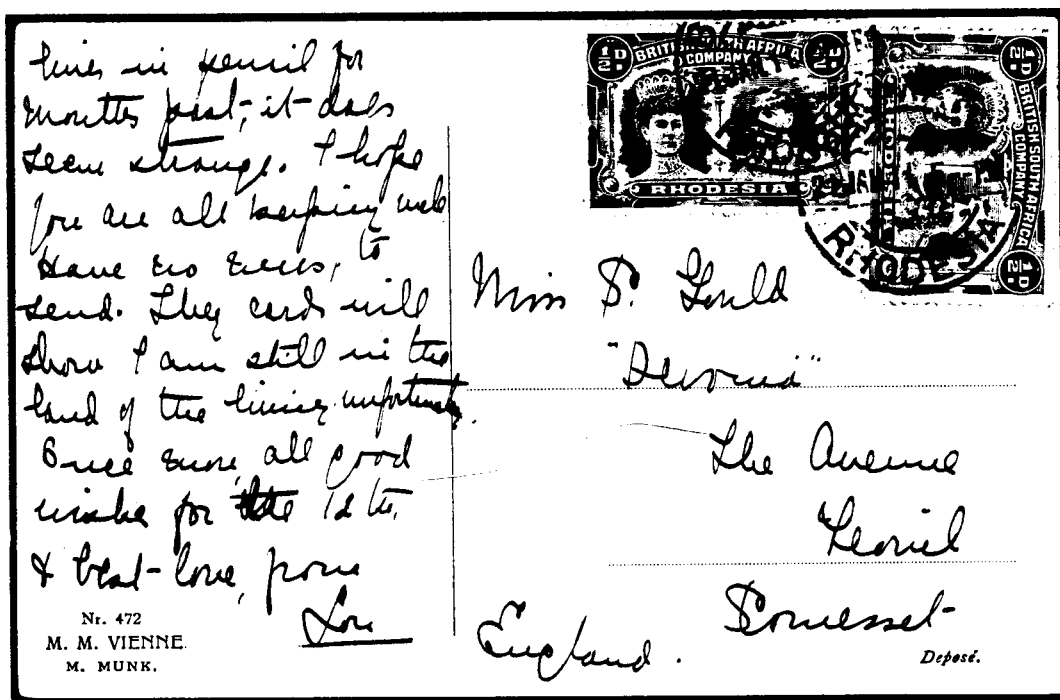 lines in pencil for
months past, it does
seem strange. I hope
you are all keeping well
Have no news, to
send. They cards will
show I am still in the
land of the living unfortunately.
Once more, all good
wishes for the 12th,
& best love, from
Lou
Nr. 472
M. M. VIENNE.
M. MUNK.
½D BRITISH SOUTH AFRICA ½D
COMPANY
RHODESIA
½D BRITISH SOUTH AFRICA ½D
COMPANY
RHODESIA
RHODESIA
Miss P. Gould
"Devonia"
The Avenue
Yeovil
Somerset
England.
Deposé.